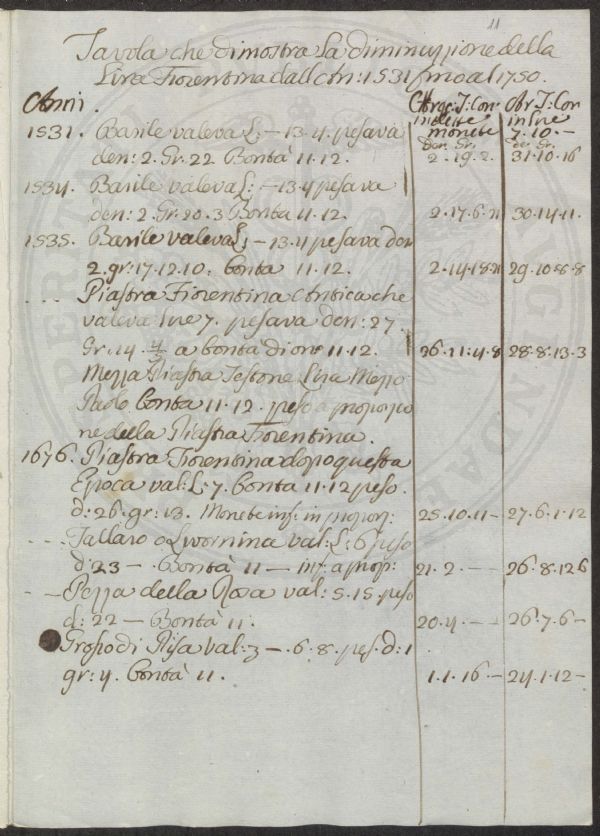 11
Tavola che dimostra la diminuzione della
Lira Fiorentina dall'An: 1531 fino al 1750.
Anni.
Arge: F: Con
in dette
monete
den. Gr.
Ar: F: Con
in lire
7.10.—
de: Gr.
1531. Barile valeva L: — 13.4. pesava
den: 2. Gr. 22 Bontà 11.12. 2.19.2. 31.10.16
1534. Barile valeva L: — 13.4 pesava
den: 2. Gr. 20.3 Bonta 11.12. 2.17.6. 30.14.11.
1535. Barile valeva L; — 13.4 pesava den
2. gr: 17.12.10: bonta 11.12. 2.14.18. 29.10.8.8
- - - Piastra Fiorentina Antica che
valeva lire 7. pesava den: 27.
Gr: 14. 4/5 a bonta di onc 11.12. 26.11.4.8 28.8.13.3
Mezza Piastra Testone Lira Mezzo
Paolo bonta 11.12. peso a proporzio
ne della Piastra Fiorentina.
1676. Piastra Fiorentina dopo questa
Epoca val: L: 7. bonta 11.12 peso.
d: 26. gr: 13. Monete inf: in propor: 25.10.11— 27.6.1.12
- - - Tallaro o Livornina val: L: 6 peso
d 23 — . Bontà 11 — inf: a prop: 21.2.— — 26.8.12 6
- - Pezza della Rosa val: 5.15 peso
d: 22 — Bontà 11. 20.4.— — 26.7.6—
Grosso di Pisa val: 3 —. 6.8. pes. d: 1
gr: 4. bontà 11. 1.1.16.— 24.1.12—
PERITANDA
AUGENDAE